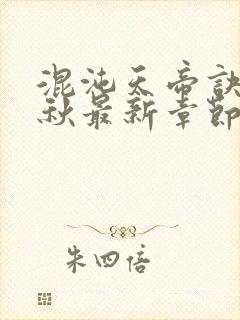 混沌天帝诀
秋最新章節
朱四倍